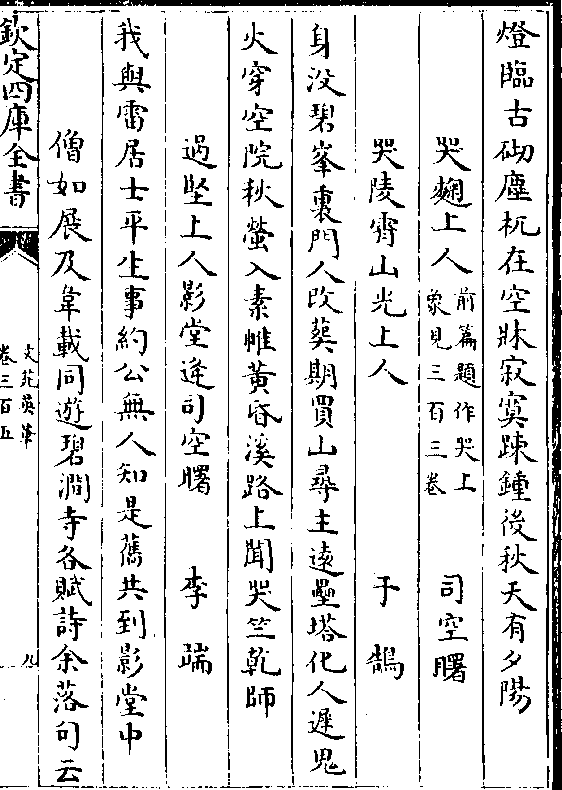 燈臨古砌塵杌在空牀寂寞踈鍾後秋天有夕陽
哭麴上人前篇題作哭上象見三百三卷 司空曙
哭陵霄山光上人 于鵠
身没碧峯裏門人改葬期買山尋主遠壘塔化人遲鬼
火穿空院秋螢入素帷黄昏溪路上聞哭竺乾師
過堅上人影堂逢司空曙 李端
我與雷居士平生事約公無人知是舊共到影堂中
僧如展及韋載同遊碧澗寺各賦詩余落句云
欽定四庫全書
文苑英華
卷三百五
九